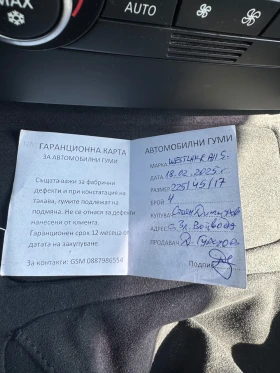 MAX
AUTO
ГАРАНЦИОННА КАРТА
ЗА АВТОМОБИЛНИ ГУМИ
Същата важи за фабрични
дефекти и при констатация на
такива, гумите подлежат на
подмяна. Не се отнася за дефекти
нанесени от клиента.
Гаранционен срок 12 месеца от
датата на закупуване.
За контакти: GSM 0887986554
АВТОМОБИЛНИ ГУМИ
МАРКА WESTLAKE All S.
ДАТА 18.02.2025 г
РАЗМЕР 225/45/17
БРОЙ 4
КУПУВАЧ Стоян
АДРЕС с. Зл. Войвода
ПРОДАВАЧ Д.
Подпис